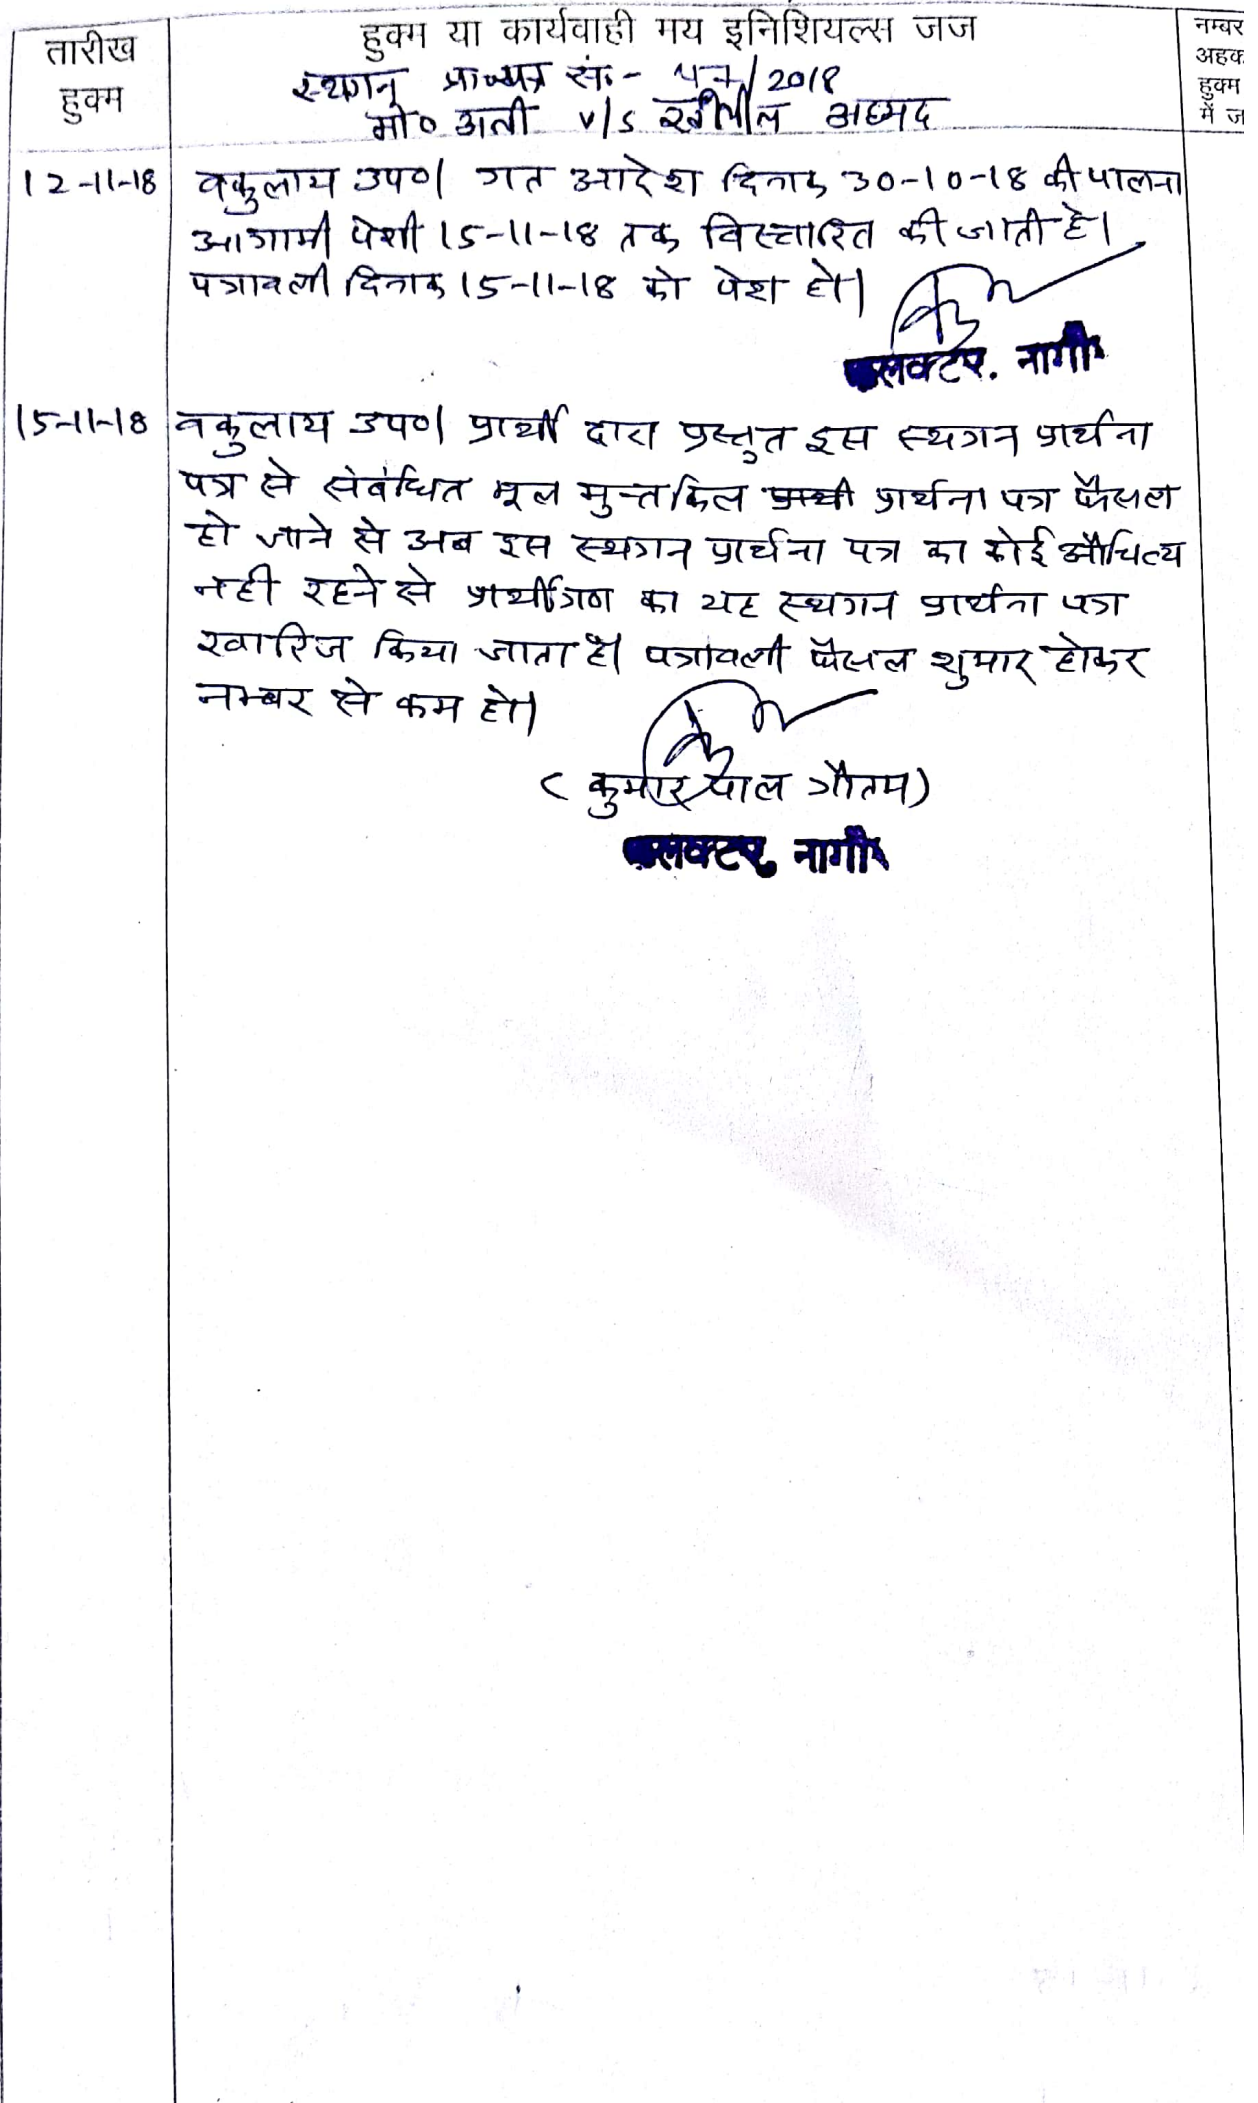 तारीख
हुक्म
हुक्म या कार्यवाही मय इनिशियल्स जज
नम्बर
अहक
हुक्म
में ज
स्थगन प्रा०पत्र सं०- 47/2018
मो० अली v/s अहमद
12-11-18 वकुलाय उप०। गत आदेश दिनांक 30-10-18 की पालना
आगामी पेशी 15-11-18 तक विस्तारित की जाती है।
पत्रावली दिनांक 15-11-18 को पेश हो।
कलक्टर, नागौर
15-11-18 वकुलाय उप०। प्रार्थी द्वारा प्रस्तुत इस स्थगन प्रार्थना
पत्र से संबंधित मूल मुन्तकिल प्रार्थी प्रार्थना पत्र फैसल
हो जाने से अब इस स्थगन प्रार्थना पत्र का कोई औचित्य
नही रहने से प्रार्थीगण का यह स्थगन प्रार्थना पत्र
खारिज किया जाता है। पत्रावली फैसल शुमार होकर
नम्बर से कम हो।
(कुमार पाल गौतम)
कलक्टर, नागौर